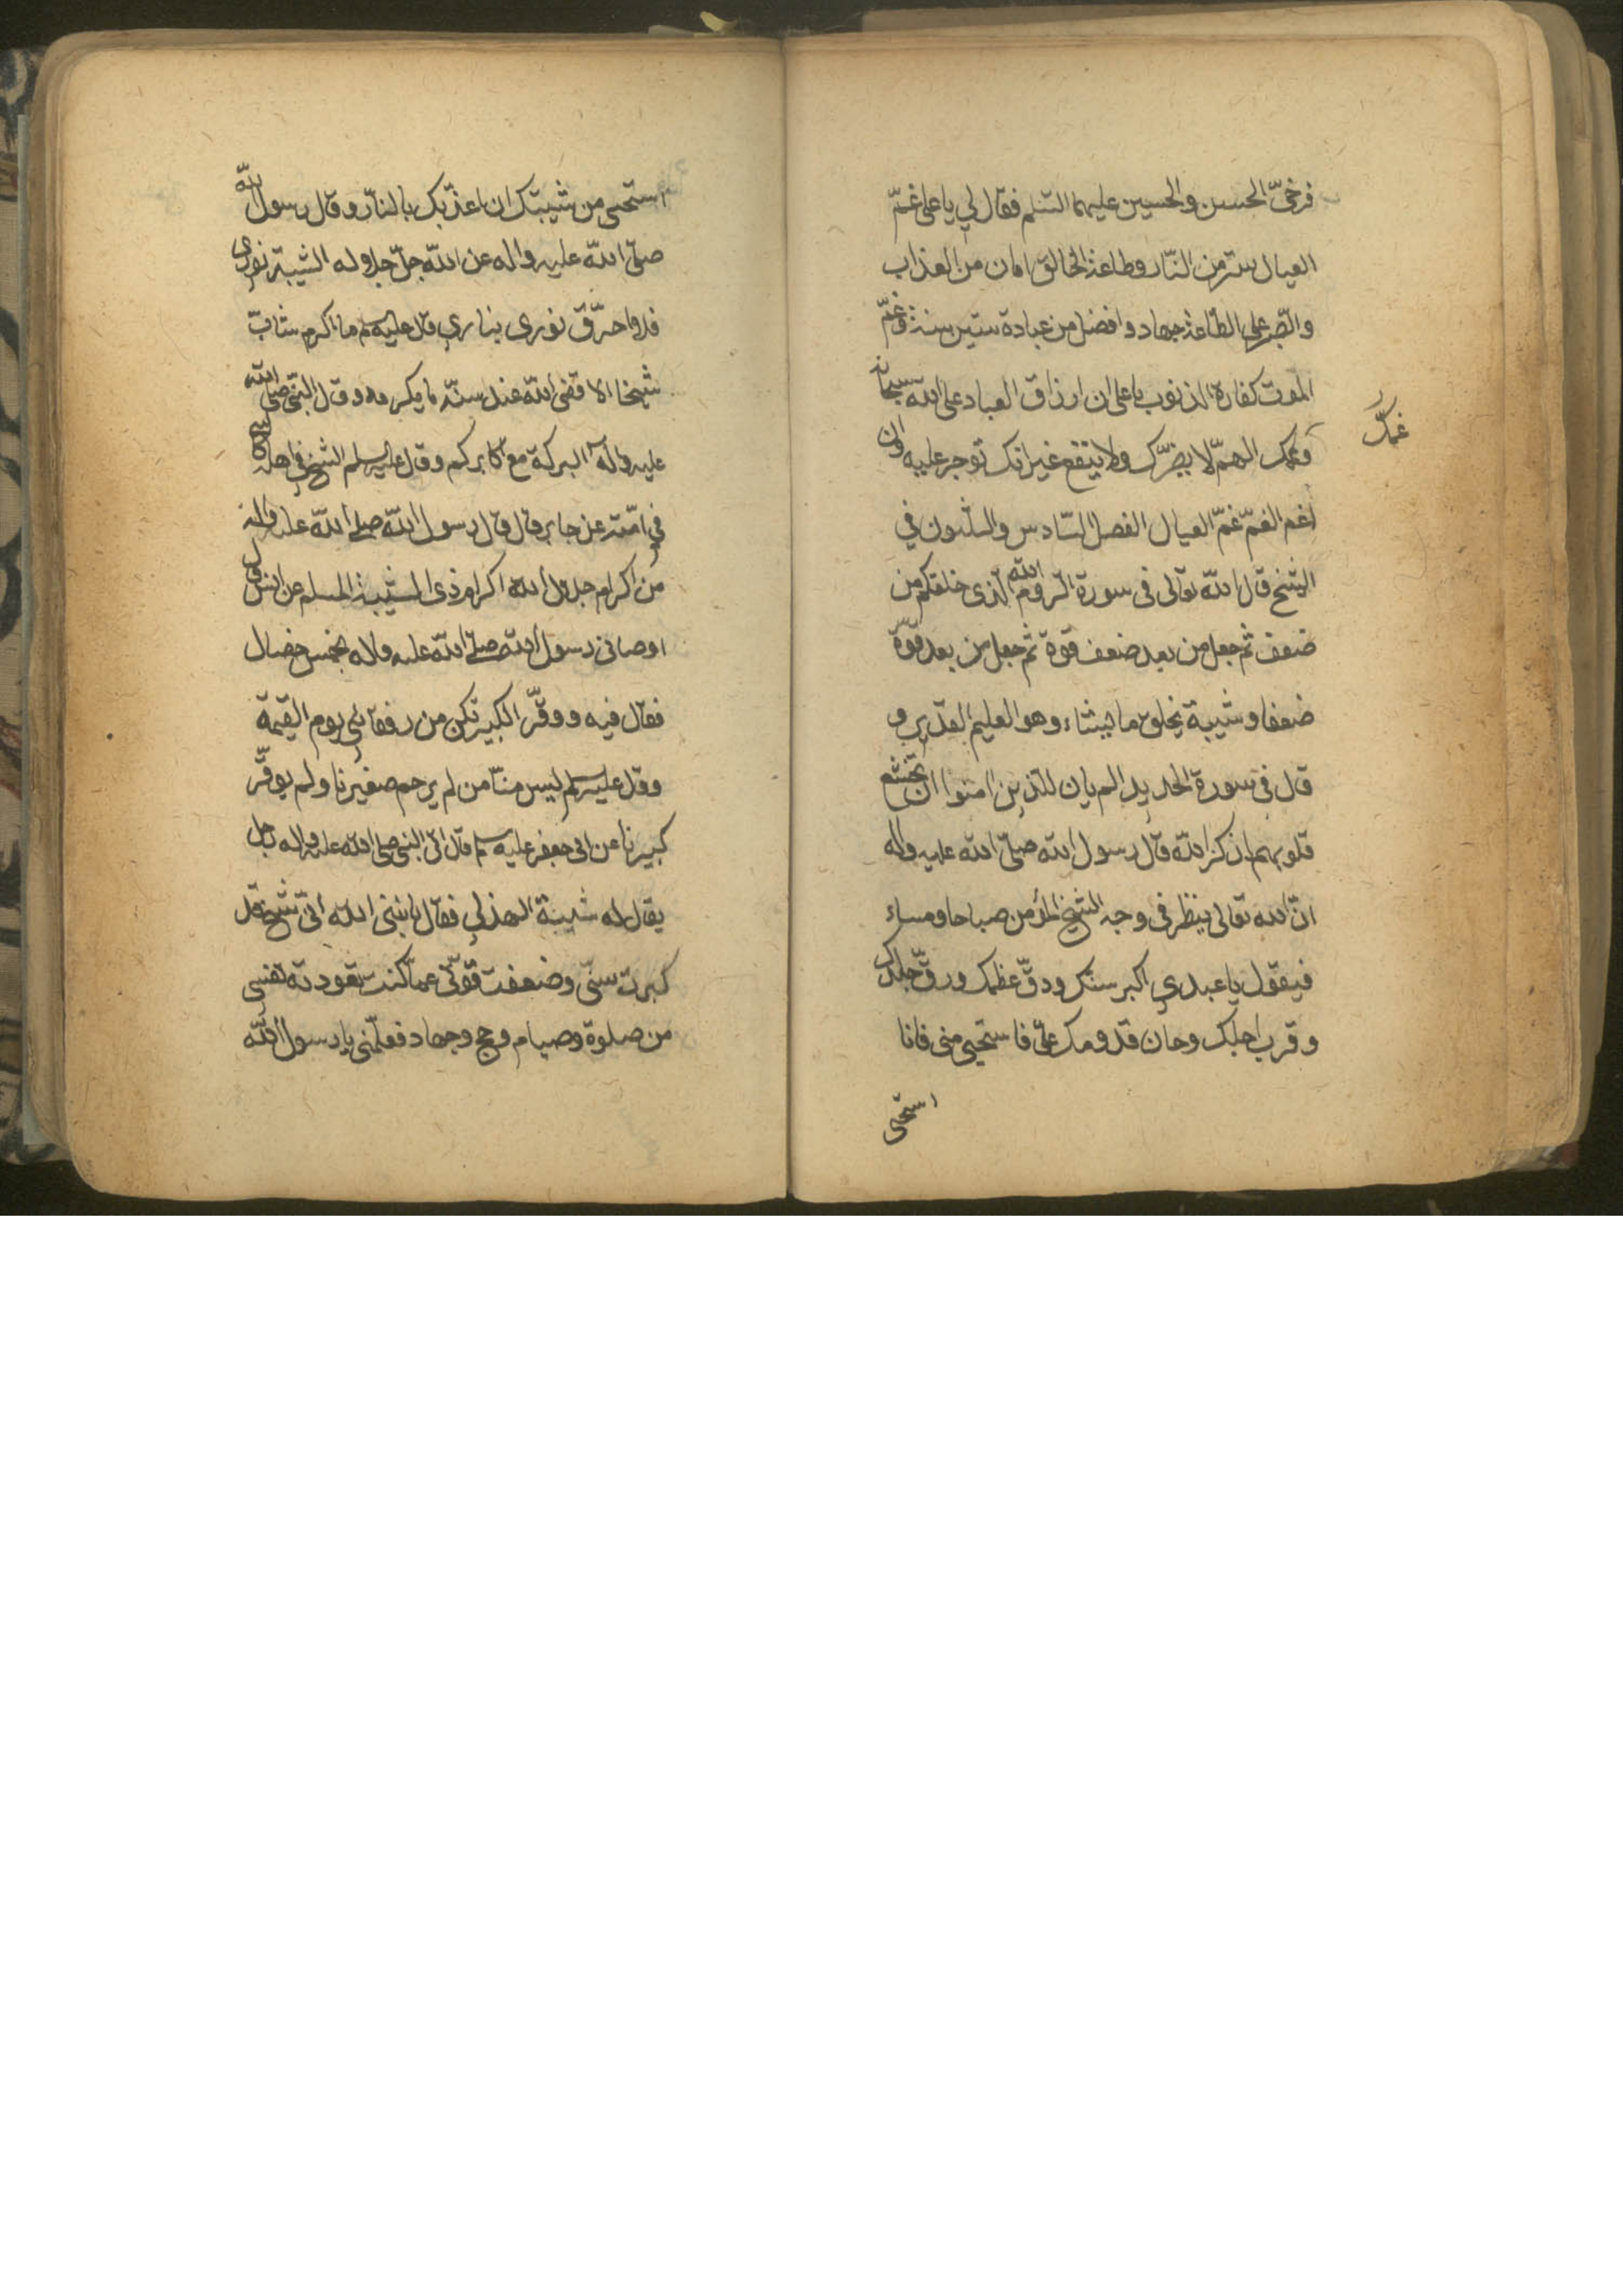 فرخيّ الحسن والحسين عليهما السّلم فقال لي يا على غمّ
العيال ستر من النّار وطاعة الخالق امان من العذاب
والصّبر على الطّاعة جهاد وافضل من عبادة ستين سنة وغمّ
الموت كفارة الذنوب يا على ان ارزاق العباد على الله سبحانه
وغمك الهمّ لا يضرّك ولا ينفع غير انك توجر عليه وان
غمك
اغم الغمّ غمّ العيال الفصل السّادس والثلثون في
الشيخ قال الله تعالى في سورة الرّوم الله الّذى خلقكم من
ضعف ثم جعل من بعد ضعف قوّة ثم جعل من بعد قوّة
ضعفا وشيبة يخلق ما يشاء وهو العليم القدير و
قال في سورة الحديد الم يان للذين امنوا ان تخشع
قلوبهم لذكر الله قال رسول الله صلّى الله عليه واله
انّ الله تعالى ينظر في وجه الشيخ المؤمن صباحا ومساء
فيقول يا عبدي اكبر سنك ودقّ عظمك ورقّ جلدك
وقرب اجلك وحان قدومك علىّ فاستحيى منى فانا
استحيى
استحيى من شيبتك ان اعذّبك بالنّار وقال رسول الله
صلّى الله عليه واله عن الله جلّ جلاوله الشيبة نورى
فلا احرّق نورى بناري وقال عليه سلم ما اكرم شابّ
شيخا الا قضى الله عند سنّه ما يكرمه وقال النبي صلى الله
عليه واله البركة مع اكابركم وقال عليه سلم الشيخ في اهله كالنبي
في امّته عن جابر قال قال رسول الله صلى الله عليه واله
من اكرام جلال الله اكرام ذى الشيبة المسلم عن انس قال
اوصانى رسول الله صلى الله عليه واله بخمس خصال
فقال فيه ووقّر الكبير تكن من رفقائي يوم القيمة
وقال عليه سلم ليس منّا من لم يرحم صغيرنا ولم يوقّر
كبيرنا عن ابى جعفر عليه سلم قال اتى النبى صلى الله عليه واله رجل
يقال له شيبة الهذلي فقال يا نبى الله انّى شيخ قد
كبرت سنّى وضعفت قوّتى عمّا كنت تعودته نفسي
من صلوة وصيام وحج وجهاد فعلّمنى يا رسول الله